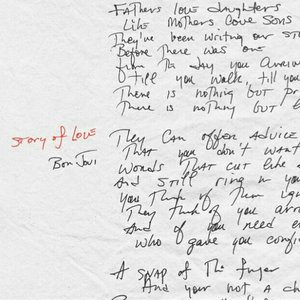 Fathers love daughters
Like Mothers love Sons
They've been writing our sto
Before there was one
from the day you arrive
till you walk, till you
There is nothing but pr
There is nothing but
Story of Love
Bon Jovi
They can offer advice
That you don't want
Words that cut like
And still ring in you
You think of them
They think of you
And if you need
who gave you confi
A snap of the finger
And your not a ch